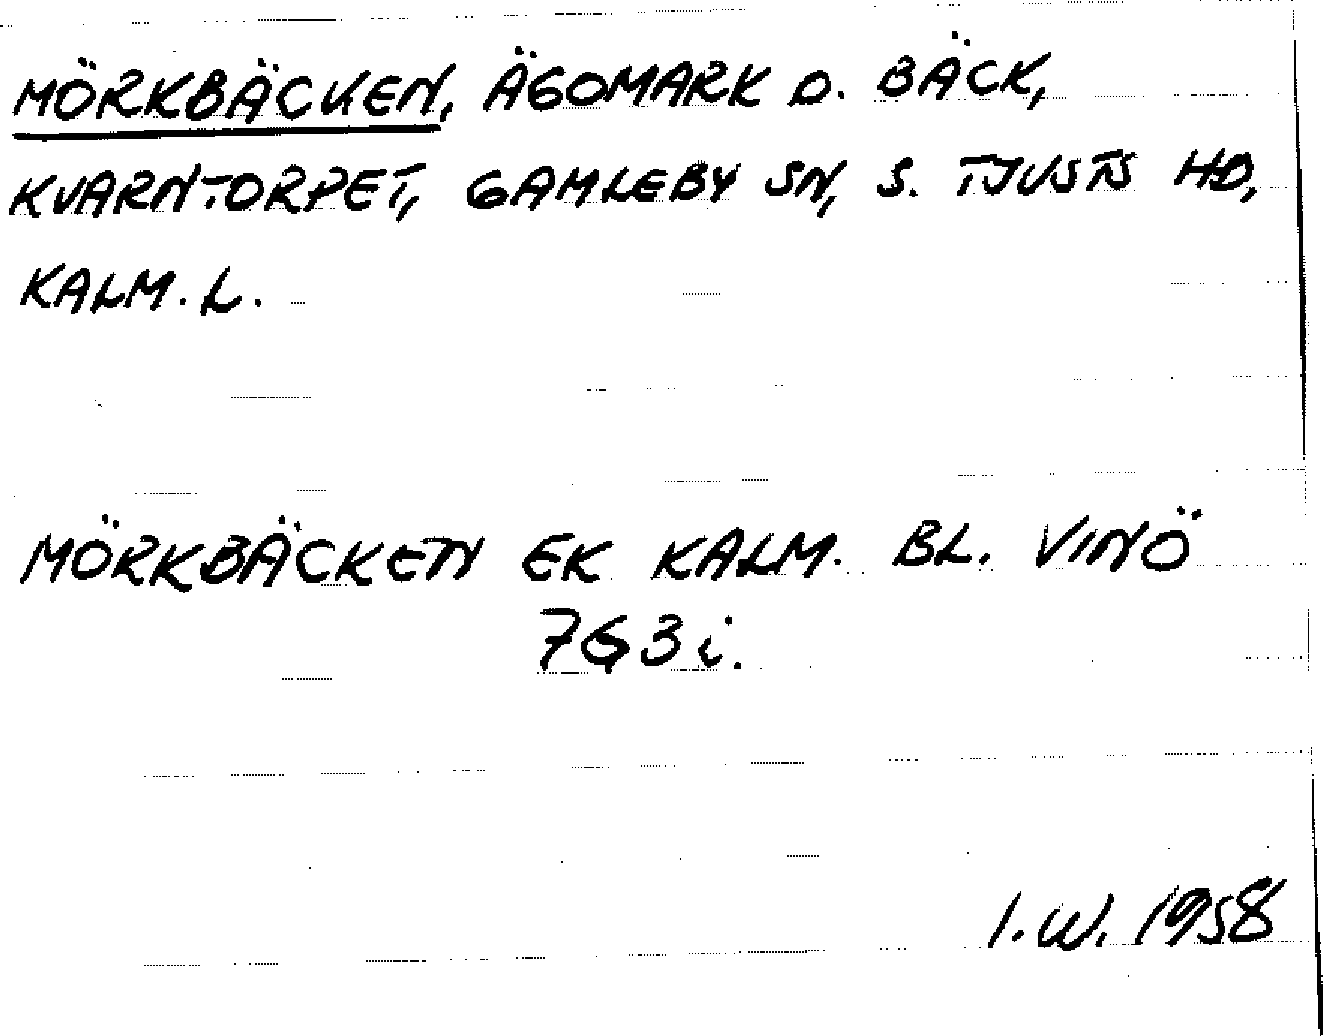 MÖRKBÄCKEN, ÄGOMARK O. BÄCK,
KVARNTORPET, GAMLEBY SN, S. TJUSTS HD,
KALM. L.
MÖRKBÄCKEN EK KALM. BL. VINÖ
763 i.
I.W. 1958